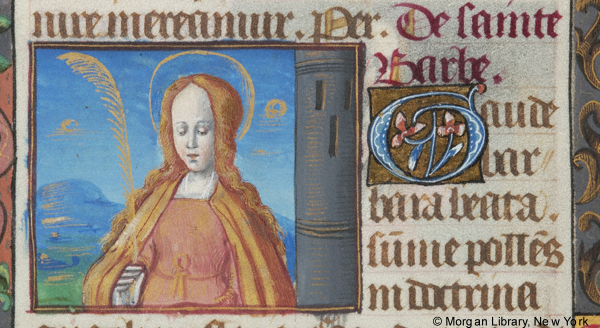 nire mereamur. Per. De sainte
Barbe.
Gaude
bar-
bara beata.
sūme pollēs
in doctrina
© Morgan Library, New York